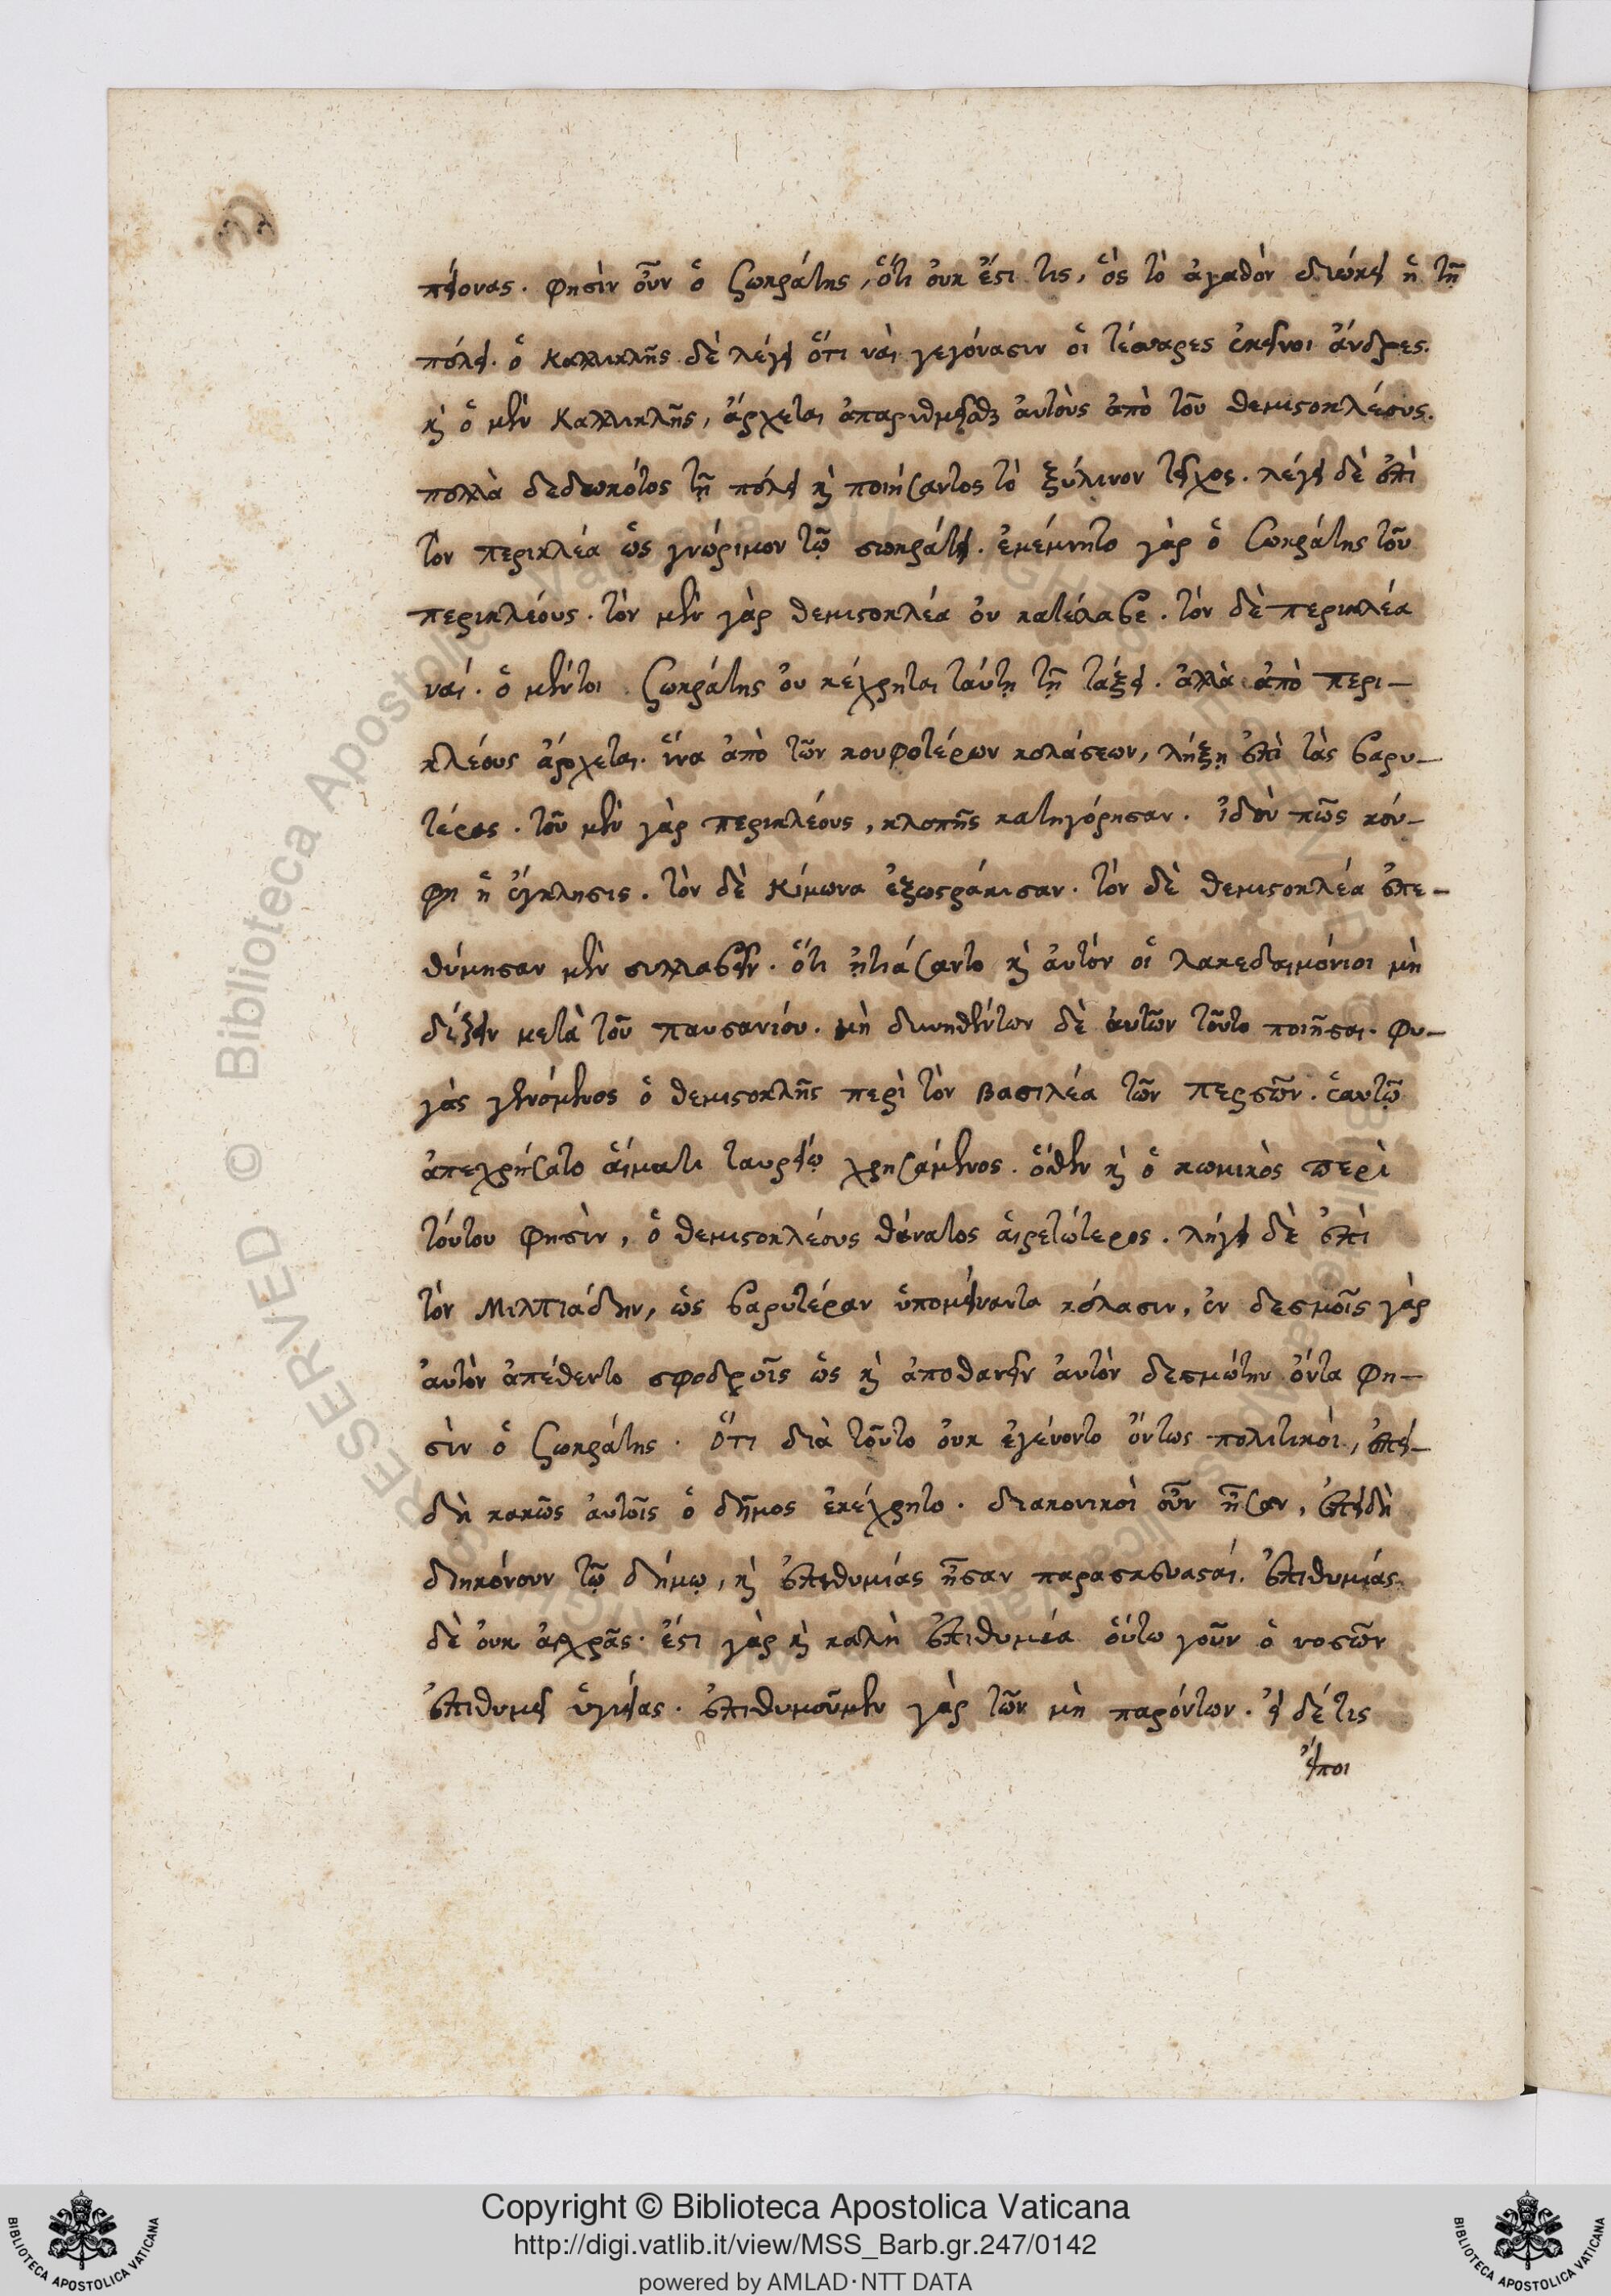 πείονας. φησὶν οὖν ὁ Σωκράτης, ὅτι οὐκ ἔστι τις, ὃς τὸ ἀγαθὸν διώκει ἢ τῇ
πόλει. ὁ Καλλικλῆς δὲ λέγει ὅτι ναὶ γεγόνασιν οἱ τέσσαρες ἐκεῖνοι ἄνδρες.
καὶ ὁ μὲν Καλλικλῆς, ἄρχεται ἀπαριθμεῖσθαι αὐτοὺς ἀπὸ τοῦ θεμιστοκλέους.
πολλὰ δεδωκότος τῇ πόλει καὶ ποιήσαντος τὸ ξύλινον τεῖχος. λέγει δὲ ἐπὶ
τὸν περικλέα ὡς γνώριμον τῷ σωκράτει. ἐμέμνητο γὰρ ὁ Σωκράτης τοῦ
περικλέους. τὸν μὲν γὰρ θεμιστοκλέα οὐ κατέλαβε. τὸν δὲ περικλέα
ναί. ὁ μέντοι Σωκράτης οὐ κέχρηται ταύτῃ τῇ τάξει. ἀλλὰ ἀπὸ περι-
κλέους ἄρχεται. ἵνα ἀπὸ τῶν κουφοτέρων κολάσεων, λήξῃ ἐπὶ τὰς βαρυ-
τέρας. τοῦ μὲν γὰρ περικλέους, κλοπῆς κατηγόρησαν. ἰδοὺ πῶς κού-
φη ἡ ἔγκλησις. τὸν δὲ κίμωνα ἐξωστράκισαν. τὸν δὲ θεμιστοκλέα ἐπε-
θύμησαν μὲν συλλαβεῖν. ὅτι ᾐτιάσαντο καὶ αὐτὸν οἱ λακεδαιμόνιοι μὴ
δίξειν μετὰ τοῦ παυσανίου. μὴ δυνηθέντων δὲ αὐτῶν τοῦτο ποιῆσαι. φυ-
γὰς γενόμενος ὁ θεμιστοκλῆς περὶ τὸν βασιλέα τῶν περσῶν. ἑαυτῷ
ἀπεχρήσατο αἵματι ταυρείῳ χρησάμενος. ὅθεν καὶ ὁ κωμικὸς περὶ
τούτου φησὶν, ὁ θεμιστοκλέους θάνατος αἱρετώτερος. λήγει δὲ ἐπὶ
τὸν Μιλτιάδην, ὡς βαρυτέραν ὑπομείναντα κόλασιν, ἐν δεσμοῖς γὰρ
αὐτὸν ἀπέθεντο σφοδροῖς ὡς καὶ ἀποθανεῖν αὐτὸν δεσμώτην ὄντα φη-
σὶν ὁ Σωκράτης. Ὅτι διὰ τοῦτο οὐκ ἐγένοντο ὄντως πολιτικοί, ἐπει-
δὴ κακῶς αὐτοῖς ὁ δῆμος ἐκέχρητο. διακονικοὶ οὖν ἦσαν, ἐπειδὴ
διηκόνουν τῷ δήμῳ, καὶ ἐπιθυμίας ἦσαν παρασκευασταί. ἐπιθυμίας
δὲ οὐκ αἰσχρᾶς. ἔστι γὰρ καὶ καλὴ ἐπιθυμία οὕτω γοῦν ὁ νοσῶν
ἐπιθυμεῖ ὑγιείας. ἐπιθυμοῦμεν γὰρ τῶν μὴ παρόντων. εἰ δέ τις
εἴποι
Copyright © Biblioteca Apostolica Vaticana
http://digi.vatlib.it/view/MSS_Barb.gr.247/0142
powered by AMLAD·NTT DATA